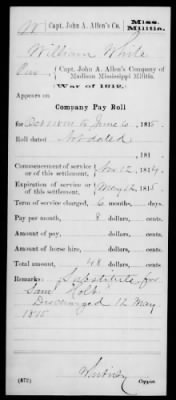 W | Capt. John A. Allen's Co. | Miss. Militia.
William White
Pvt, Capt. John A. Allen's Company of
Madison Mississippi Militia.
(War of 1812.)
Appears on
Company Pay Roll
for to June 6, 1815.
Roll dated Not dated
, 181
Commencement of service or of this settlement, Nov 12, 1814.
Expiration of service or of this settlement, May 12, 1815.
Term of service charged, 6 months, days.
Pay per month, 8 dollars, cents.
Amount of pay, dollars, cents.
Amount of horse hire, dollars, cents.
Total amount, 48 dollars, cents.
Remarks: Substitute for
Sam' Holt
Discharged 12 May
1815
(672) Copyist.